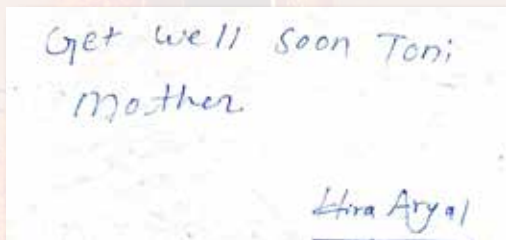 Get well soon Toni
Mother
Hira Aryal